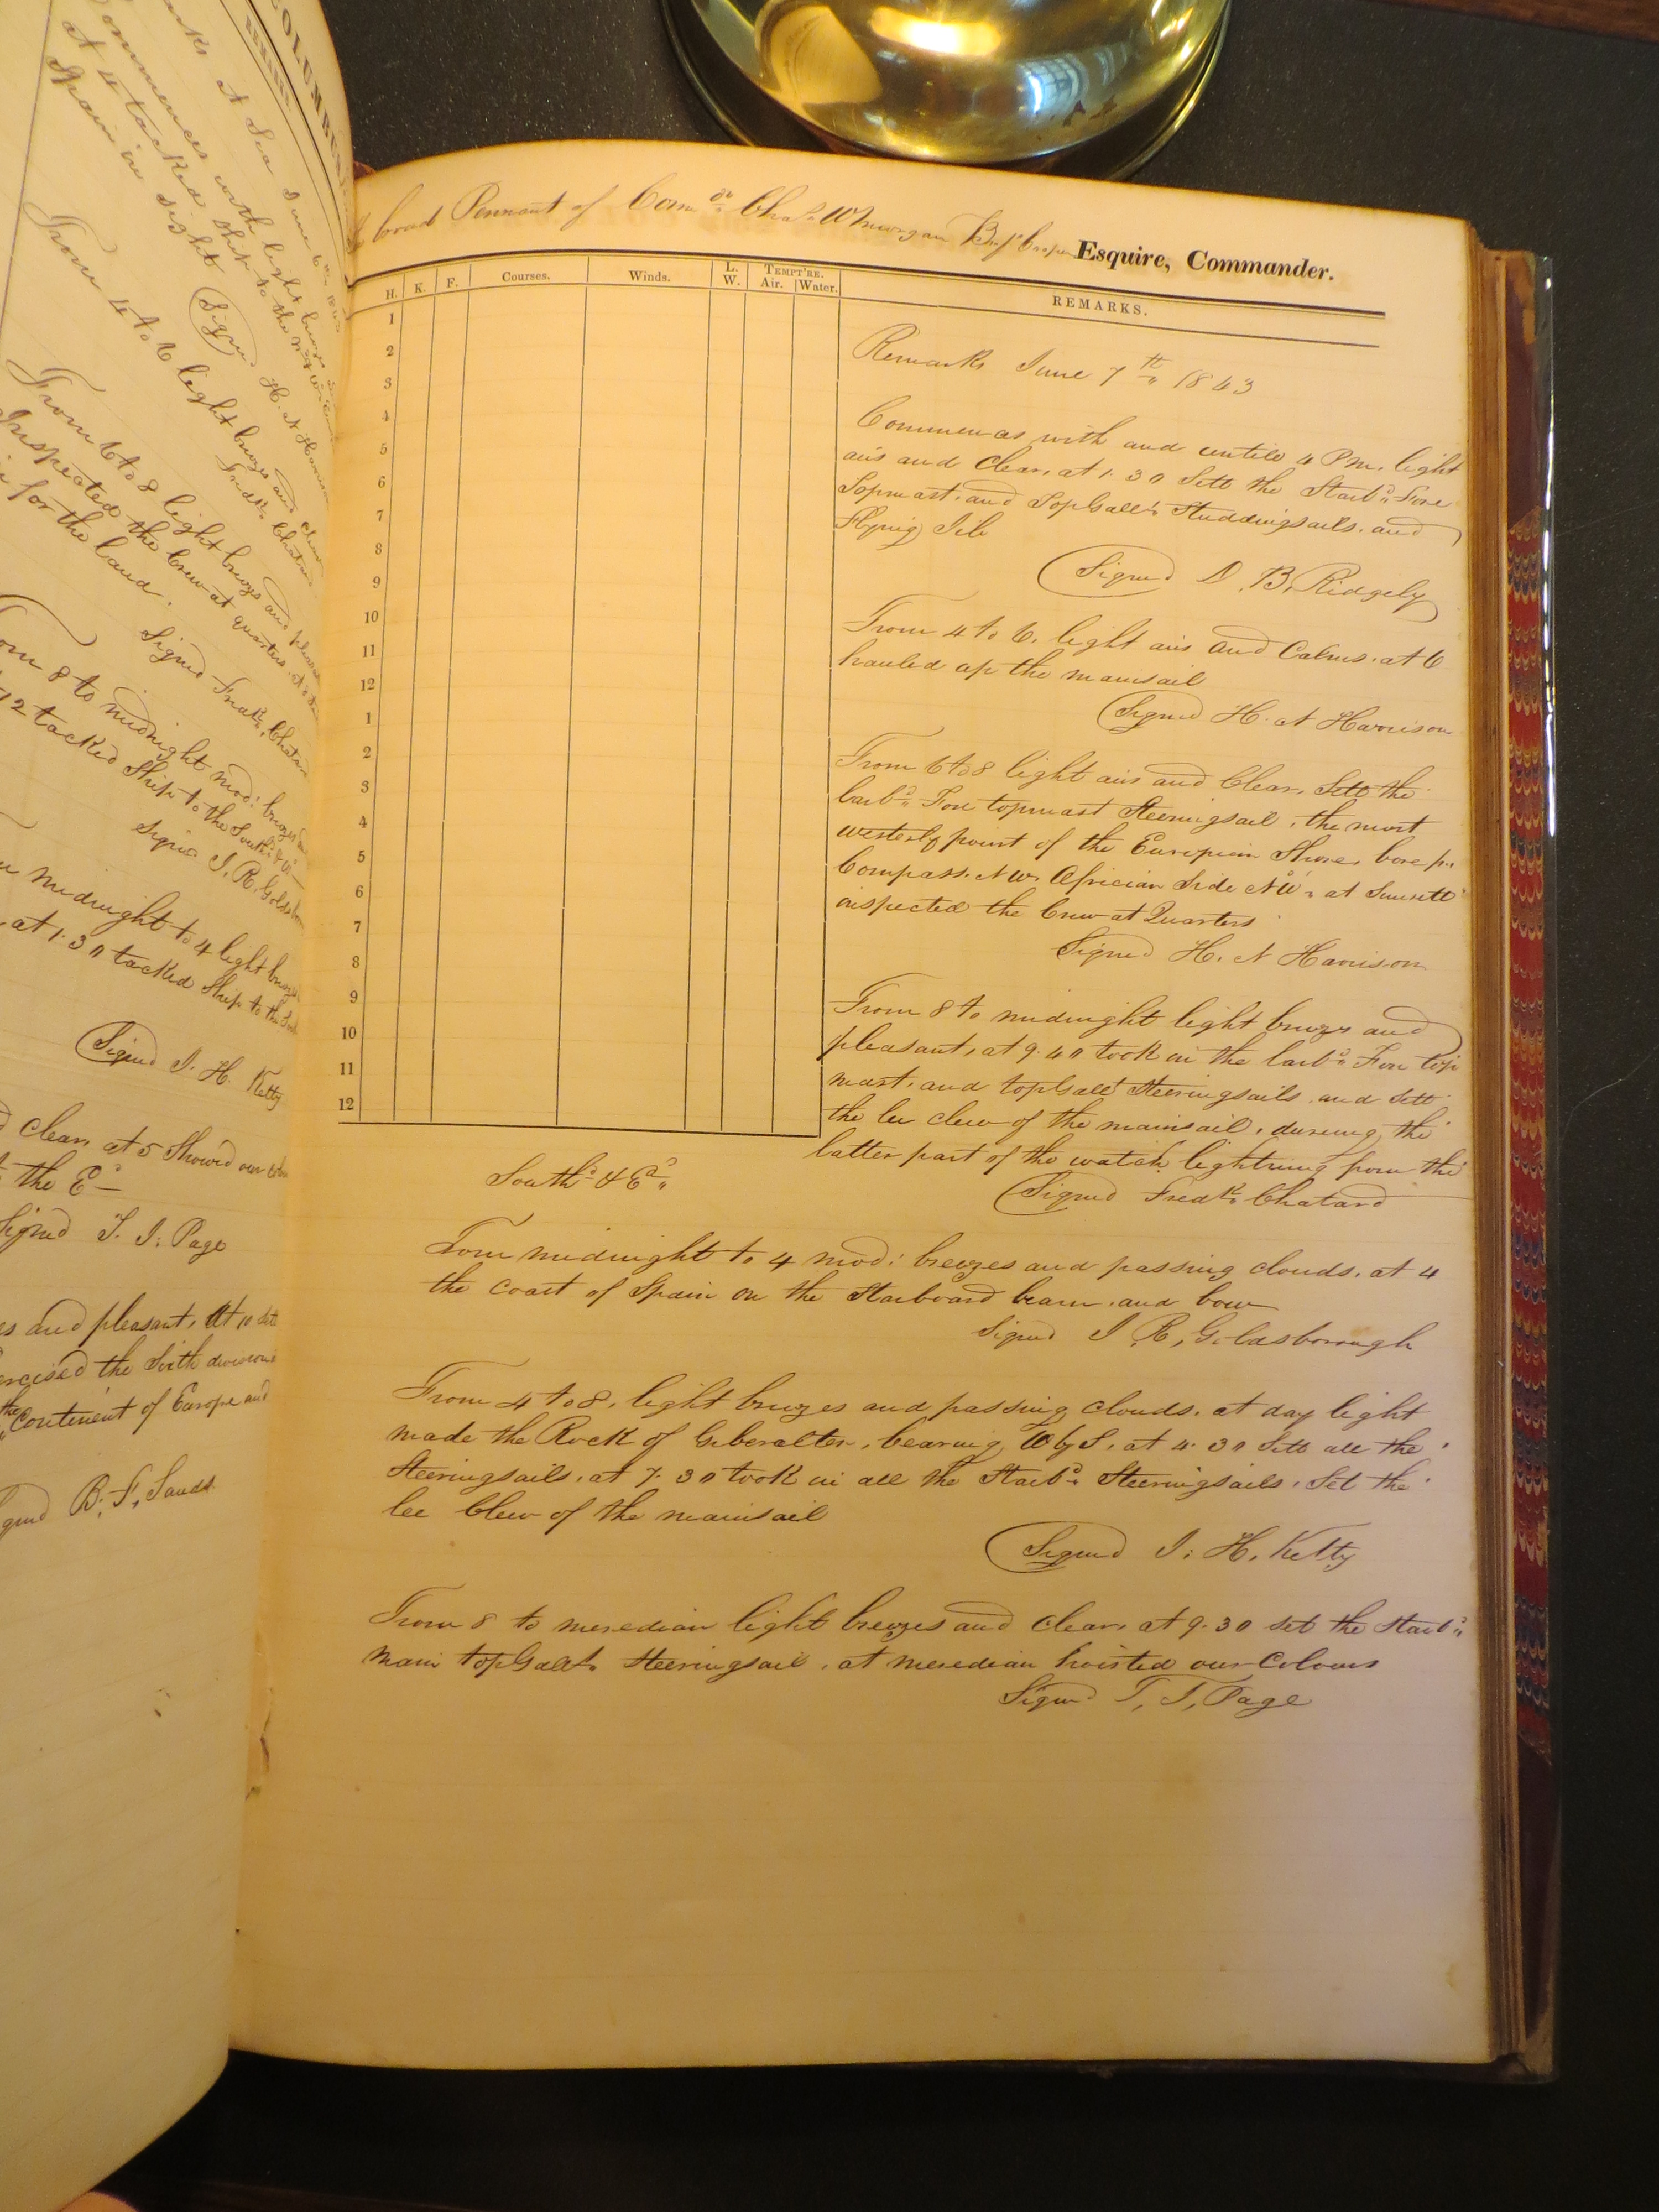 COLUMBUS
At Sea June 6th 1843
Commences with light breezes
at 4 tacked Ship to the
Spain in sight
Signed H. N Harrison
From 4 to 6 light breezes and clear
Signed Fredk. Chatard
From 6 to 8 light breezes and pleasant
Inspected the Crew at quarters
in for the land.
Signed Fredk. Chatard
From 8 to midnight mod: breezes
12 tacked Ship to the Southd & Wd
Signed I. R. Goldsborough
midnight to 4 light breezes
at 1.30 tacked Ship to the
Signed I. H. Kelty
clear, at 5 Showed our
the Ed
Signed T. J. Page
and pleasant, At 10 Sett
exercised the Sixth division
the Continent of Europe and
Signed B. F. Sands
broad Pennant of Comdr Chas. W Morgan Benj. Cooper Esquire, Commander.
H. K. F. Courses. Winds. L. W. TEMPT'RE. Air. Water. REMARKS.
1
2
3
4
5
6
7
8
9
10
11
12
1
2
3
4
5
6
7
8
9
10
11
12
Remarks June 7th 1843
Commences with and untill 4 P.M. light
airs and Clear, at 1.30 Sett the Starbd. Fore
Topmast. and TopGallt. Studdingsails. and
Flying Jib
Signed D. B. Ridgely
From 4 to 6. light airs and Calms. at 6
hauled up the mainsail
Signed H. N Harrison
From 6 to 8 light airs and Clear, Sett the
larbd. Fore topmast Steeringsail, the most
westerly point of the European Shore, bore pr.
Compass. NW. Africian Side NW. at Sunsett
inspected the Crew at Quarters
Signed H. N Harrison
From 8 to midnight light breezes and
pleasant, at 9.40 took in the larbd. Fore top
mast. and topGallt Steeringsails. and Sett
the lee clew of the mainsail, dureing the
latter part of the watch lightning from the
Southd. & Ed.
Signed Fredk. Chatard
From midnight to 4 mod: breezes and passing clouds. at 4
the coast of Spain on the Starboard beam. and bow
Signed I R, Goldsborough
From 4 to 8. light breezes and passing clouds. at day light
made the Rock of Giberalter, bearing W by S. at 4.30 Sett all the
Steeringsails. at 7.30 took in all the Starbd. Steeringsails. Set the
lee Clew of the mainsail
Signed I: H. Kelty
From 8 to meredian light breezes and clear, at 9.30 set the Starbd.
main topGallt. Steeringsail. at meredian hoisted our Colours
Signed T, J, Page